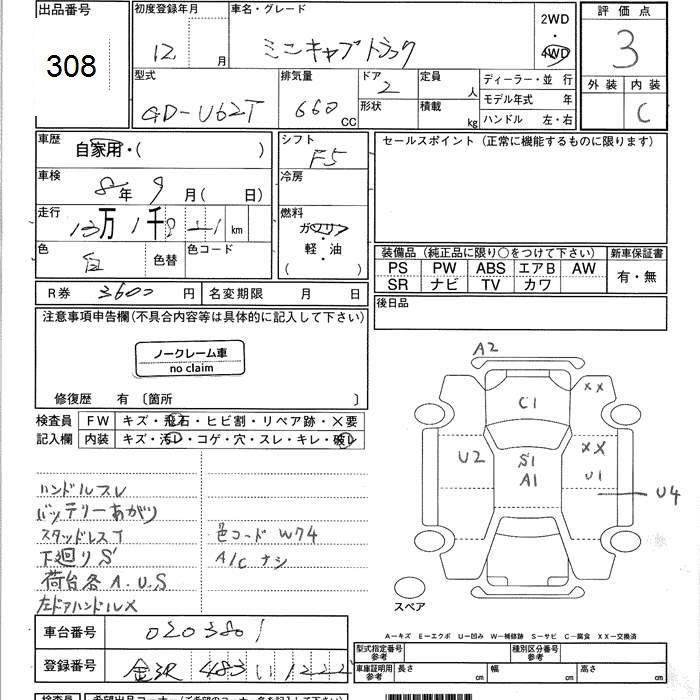 出品番号 初度登録年月 車名・グレード 2WD・4WD 評価点
308 12 月 ミニキャブトラック 3
型式 GD-U62T 排気量 660 CC ドア 2 形状 定員 人 積載 kg
ディーラー・並 行 外装 内装
モデル年式 年 C
ハンドル 左・右
車歴 自家用・( ) シフト F5 セールスポイント(正常に機能するものに限ります)
車検 8年 9月( 日) 冷房
走行 13万1千 km 燃料 ガソリン・軽・油 ( )
色 白 色替 色コード
装備品(純正品に限り○をつけて下さい) 新車保証書
PS PW ABS エアB AW 有・無
SR ナビ TV カワ
R券 3600 円 名変期限 月 日 後日品
注意事項申告欄(不具合内容等は具体的に記入して下さい)
ノークレーム車
no claim
修復歴 有 〔箇所 〕
検査員 FW キズ・飛石・ヒビ割・リペア跡・×要
記入欄 内装 キズ・汚レ・コゲ・穴・スレ・キレ・破レ
A2
C1
XX
U2
S1
A1
XX
U1
U4
スペア
ハンドルスレ
バッテリーあがり
スタッドレスT 色コード W74
下廻りS A/C ナシ
荷台各A.U.S
左ドアハンドルX
車台番号
登録番号 金沢 483 い 1222
A―キズ E―エクボ U―凹み W―補修跡 S―サビ C―腐食 XX―交換済
型式指定番号 参考 種別区分番号 参考
車庫証明用 参考 長さ 幅 高さ